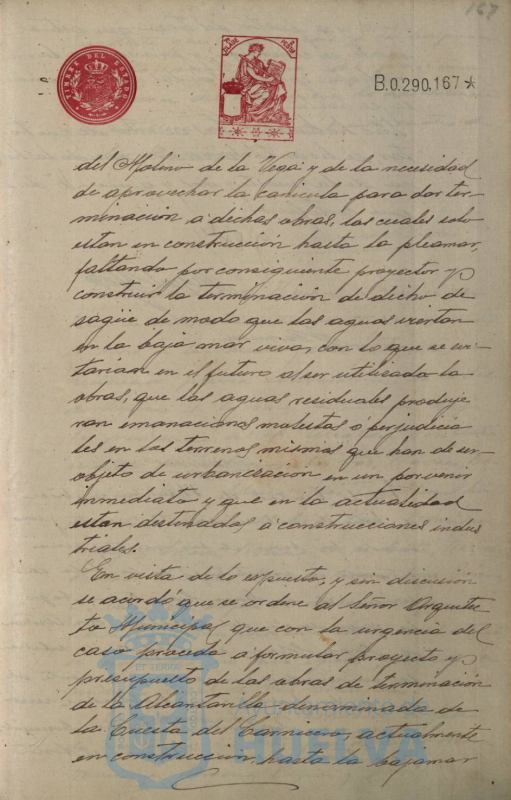 167
TIMBRE DEL ESTADO
B.0.290,167*
del Molino de la Vega y de la necesidad
de aprovechar la canicula para dar ter-
minación a dechas obras, las cuales solo
estan en construcción hasta la pleamar,
faltando por consiguiente proyectar y
construir la terminación de dicho de-
sagüe de modo que las aguas viertan
en la baja mar viva, con lo que se evi-
tarian en el futuro al ser utilizada la
obras, que las aguas residuales produje
ran emanaciones molestas ó perjudicia
les en los terrenos mismos que han de ser
objeto de urbanización en un porvenir
inmediato y que en la actualidad
estan destinados á construcciones indus
triales.
En vista de lo expuesto, y sin discusión
se acordó que se ordene al Señor Arquitec
to Municipal que con la urgencia del
caso proceda a formular proyecto y
presupuesto de las obras de terminación
de la Alcantarilla denominada de
la Cuesta del Carnicero, actualmente
en construcción, hasta la bajamar
HUELVA